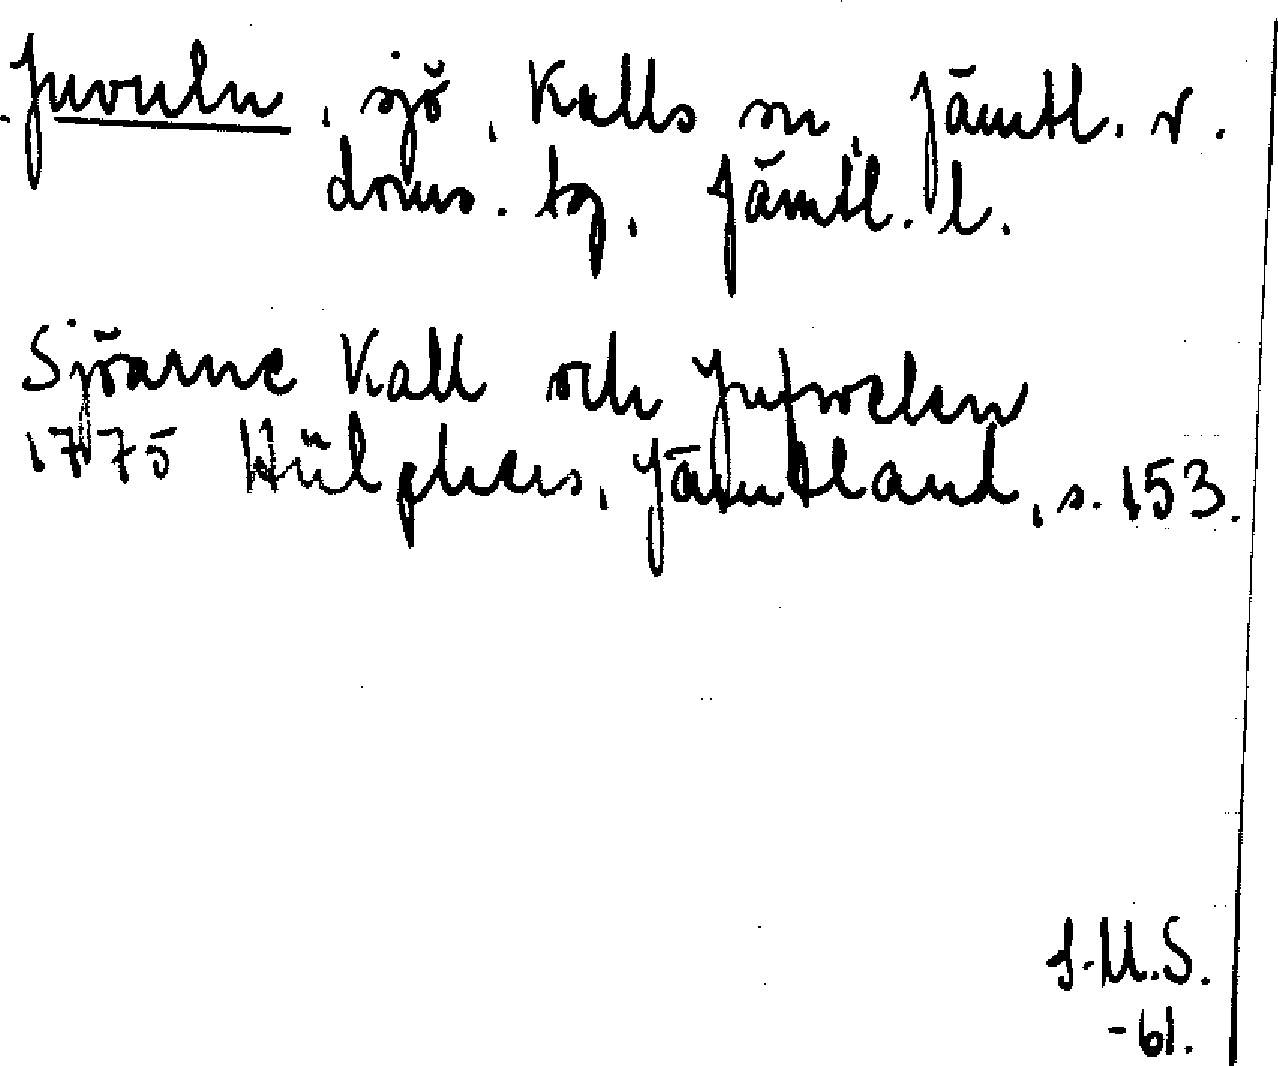 Juvuln, sjö, Kalls sn, Jämtl. v.
doms. tg, Jämtl. l.
Sjöarne Kall och Jufwelen
1775 Hülphers, Jämtland, s. 153.
J.M.S.
-61.